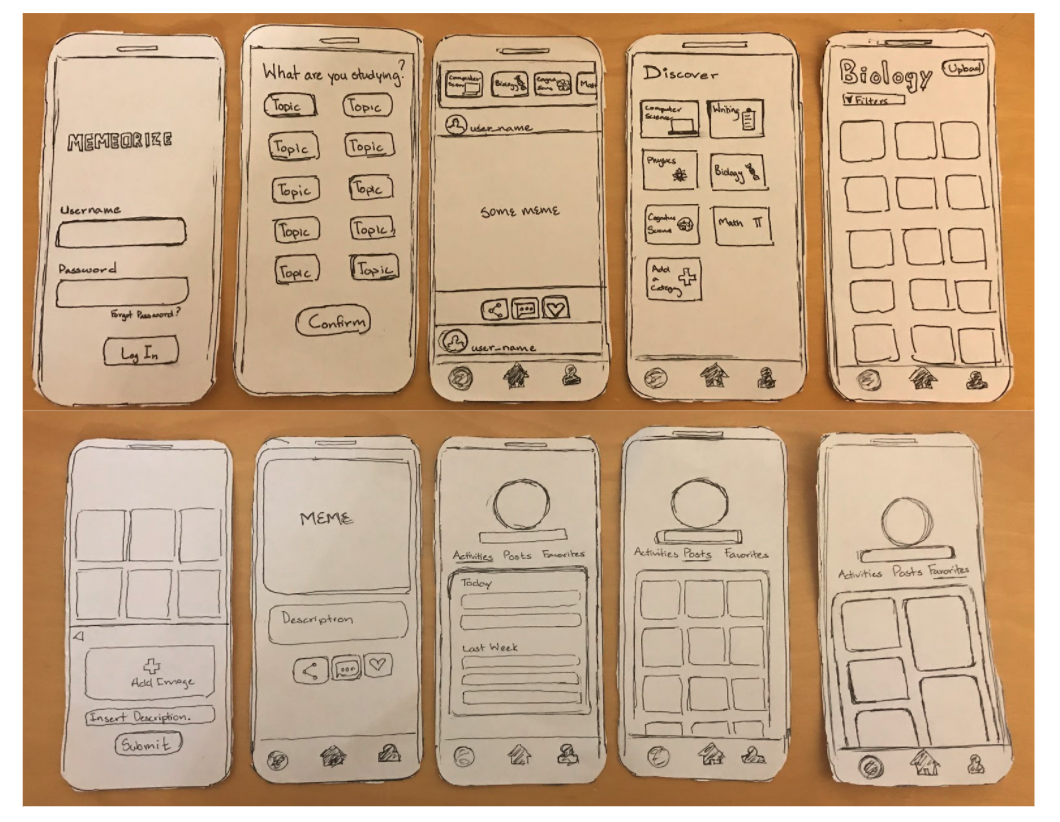 MEMEORIZE
Username
Password
Forgot Password?
Log In
What are you studying?
Topic Topic
Topic Topic
Topic Topic
Topic Topic
Topic Topic
Confirm
Computer Biology
user_name
SOME MEME
user_name
Discover
Computer Science Writing
Physics Biology
Math π
Add a Category
Biology Upload
Filters
Add Image
Insert Description.
Submit
MEME
Description
Activities Posts Favorites
Today
Last Week
Activities Posts Favorites
Activities Posts Favorites